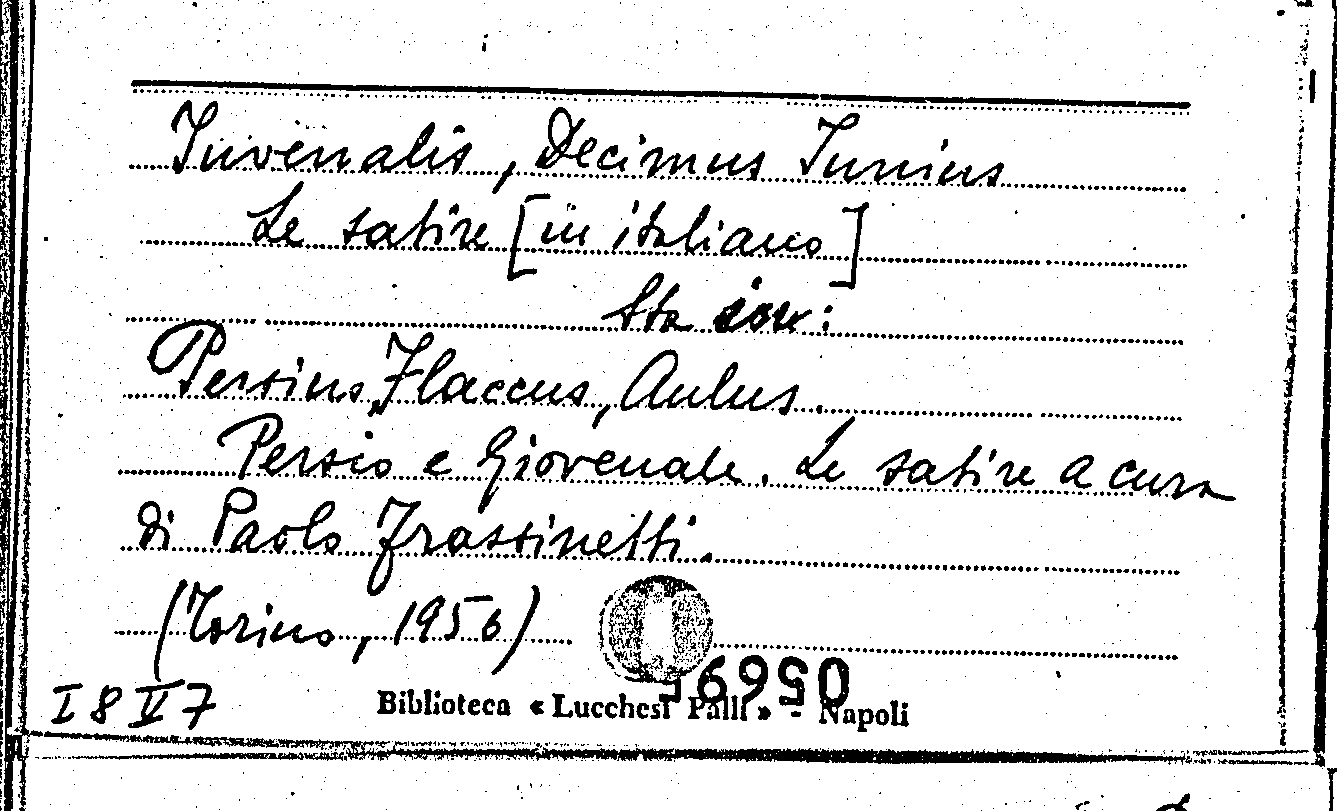 Iuvenalis, Decimus Iunius
Le satire [in italiano]
Sta
Persius Flaccus, Aulus.
Persio e Giovenale. Le satire a cura
di Paolo Frassinetti.
(Torino, 1956)
I 8 V 7
Biblioteca « Lucchesi Palli » - Napoli